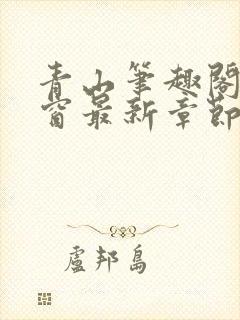 青山筆趣閣
窗最新章節
盧邦島